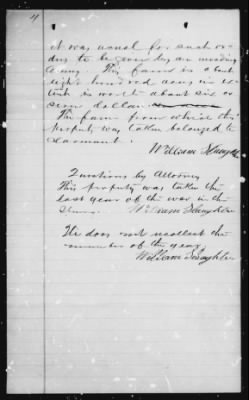 4
it was usual for such or-
ders to be given by an invading
army. This farm is about
eight hundred acres in ex-
tent is worth about six or
seven dollars
The farm from which this
property was taken belonged to
claimant.
William Slaughter
Questions by Attorney
This property was taken the
last year of the war in the
William Slaughter
He does not recollect the
number of the year.
William Slaughter